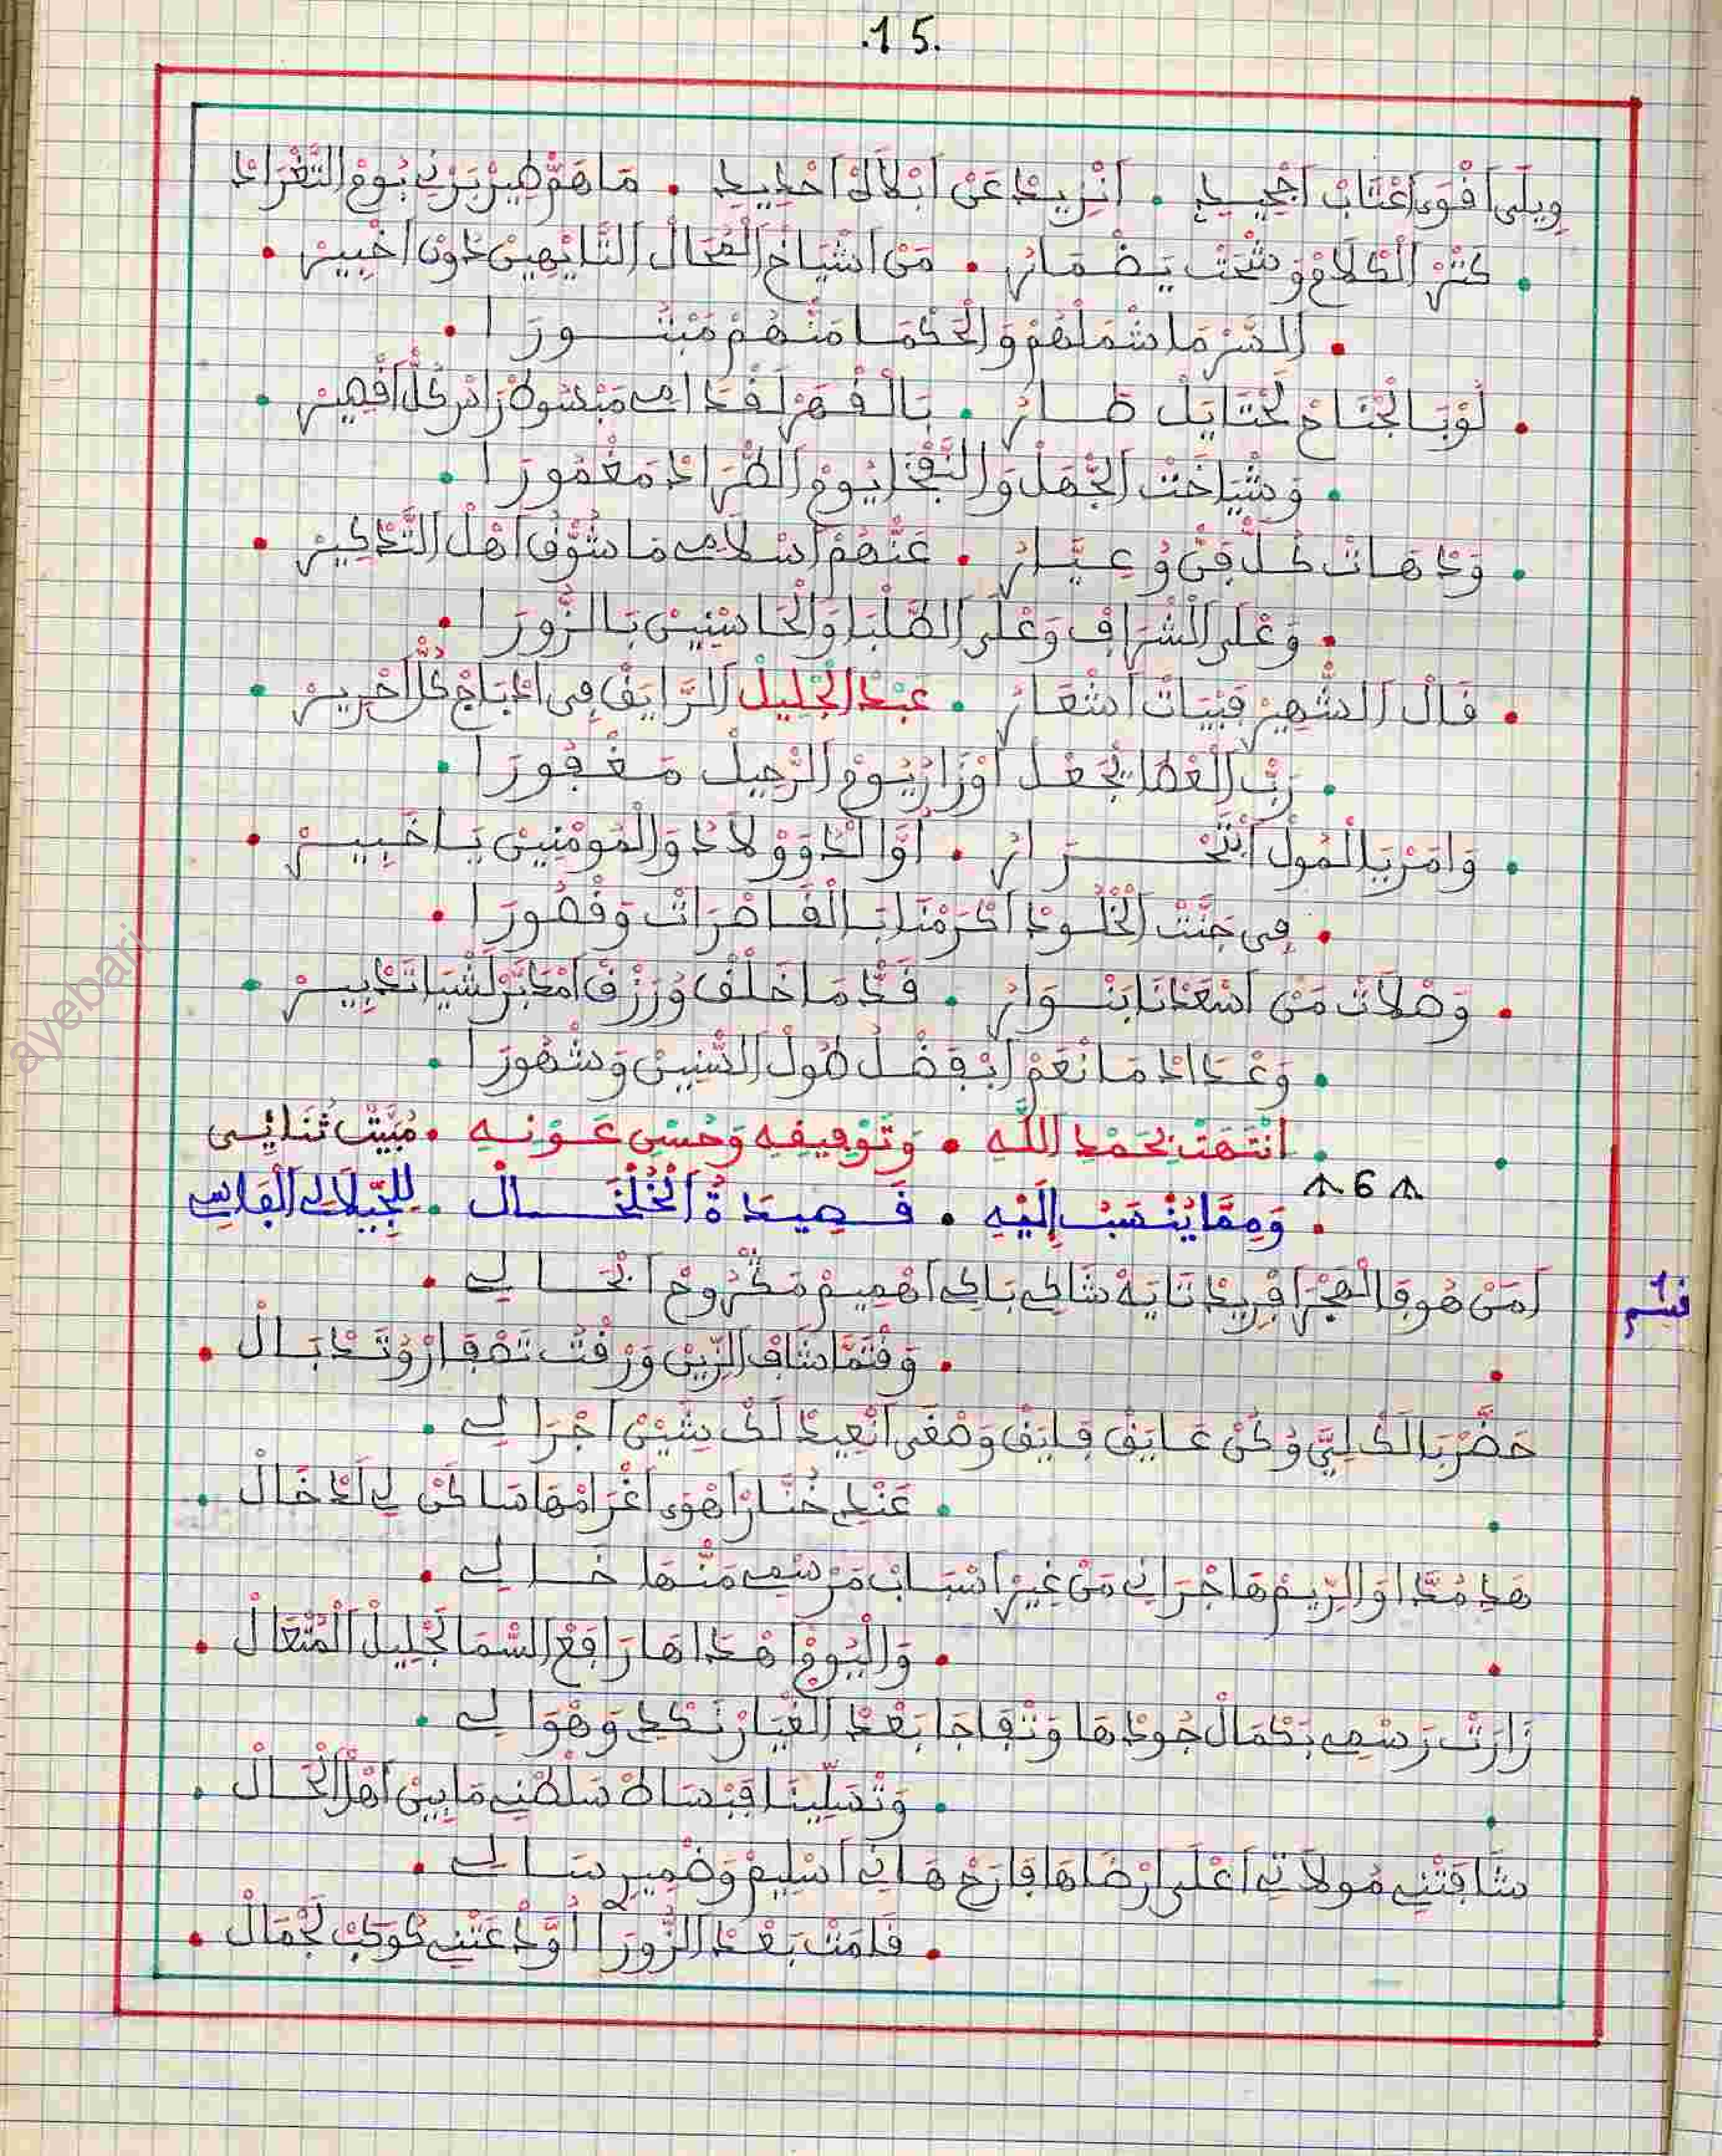 .15.
وِيلَى اَقْوَى اعْتَابْ اَجْحِيدِ . اَنْزِيدْ عَنْ اَبْلاَكْ اَحْدِيدِ . مَاهَوّْ طِيرْ بَرْنِي يُومْ التَّغْرَادْ
. كَثْرْ الْكْلاَمْ وَشْحَتْ يَضْمَارُ . مَنْ اَشْيَاخْ الْمُحَالْ التَّايْهِينْ دُونْ اَخْبِيرْ .
. السَّرْ مَا شْمَلْهُمْ وَالْحَكْمَا مَنْهُمْ مَبْتُورَا .
. لَوْ بَالْجْنَاحْ لَحْتَايَلْ طَارُ . بَالْقَهْرْ لَقْدَامِي مَبْسُوطْ رَادْ كُلّْ اَقْصِيرْ .
. وَشْيَاخَتْ الْجْهَلْ وَالنَّفْخَا يُومْ الطّْرَادْ مَغْمُورَا .
. وَدْهَاتْ كُلّْ فَنّْ وُعِيَّارُ . عَنْهُمْ اَسْلاَمِي مَا شُوّْقُ اَهْلْ التَّدْكِيرْ .
. وَعْلَى الشّْرَافْ وَعْلَى الطّلْبَا وَالْحَاسْنِينْ بَالزُّورَا .
. قَالْ الشّْهِيرْ فَبْيَاتْ اَشْعَارُ . عَبْدْ الْجْلِيلْ الرَّايَقْ فِى ادْبَاجْ كُلّْ اَحْرِيرْ .
. رَبّْ الْعْطَا يَجْعَلْ اَوْزَارُ يُومْ الرّْحِيلْ مَغْفُورَا .
. وَامَرْ يَا الْمُولْ اَبْتَحْرَارُ . اُوَّالْدُ وَوْلاَدُ وَالْمُومْنِينْ يَا خَبِيرْ .
. فِى جَنّْتْ الْخْلُودْ اَكْرَمْنَا بَالْقَاصْرَاتْ وَقْصُورَا .
. وَصْلاَتْ مَنْ اَسْعَدْنَا بَنْوَارُ . قَدّْ مَا خْلَقْ وُرْزَقْ اَمْدَبَّرْ لَشْيَا تَدْبِيرْ .
. وَعْدَادْ مَا نْعَمْ اَبْفَضْلُ طُولْ السّْنِينْ وَشْهُورَا .
. انْتَهَتْ بِحَمْدِ اللَّهِ . وَتَوْفِيقِهِ وَحُسْنِ عَوْنِهِ . مُبَيَّتْ ثُنَائِي
6
. وَمِمَّا يُنْسَبُ إِلَيْهِ . قَصِيدَةُ الْخُلْخَالْ . لِلْجِيلَالِي الْفَارِسِي
قسم 1
اَمَنْ هُو فَالْهْجَرْ اَفْرِيدْ تَايَهْ شَاكِي بَاكِي اَهْمِيمْ مَكْرُوحْ اَنْحَالِي .
. وَقْتَمَّا شَافْ الزِّينْ وَرْقْتُ تَصْفَارْ وُتَدْبَالْ .
حَضّْرْ بَالَكْ لِيَّ وُكُنْ عَايَقْ فَايَقْ وَصْغَى اَنْعِيدْ لَكْ بِشّْيِنْ اَجْرَالِي .
. عَنْدِي خُنَّارْ اَهْوَى اَغْرَامْهَا سَاكَنْ لِي لَدْخَالْ .
هَدِي مُدَّا وَالرِّيمْ هَاجْرَانِي مَنْ غِيرْ اَسْبَابْ مَرْسْمِي مَنْهَا خَالِي .
. وَالْيُومْ اَهْدَاهَا رَافَعْ السّْمَا لَجْلِيلْ الْمُتْعَالْ .
زَارَتْ رَسْمِي بَكْمَالْ جُودْهَا وَتْفَاجَا بَعْدْ الْغْيَارْ نَكْدِي وَهْوَالِي .
. وَتْسَلِّينَا فَبْسَاطْ سَلْطْنِي مَابِينْ اَهْلْ الْحَالْ .
شَافَتْنِي مُولاَتِي اَعْلَى ارْضَاهَا فَارَحْ هَانِي اَسْلِيمْ وَضْمِيرِي سَالِي .
. قَامَتْ بَعْدْ الزُّورَا اُوَّدْعَتْنِي كُوكَبْ لَجْمَالْ .
ayebari